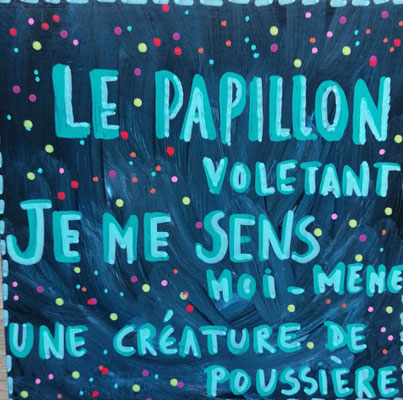 LE PAPILLON
VOLETANT
JE ME SENS
MOI-MÊME
UNE CRÉATURE DE
POUSSIÈRE